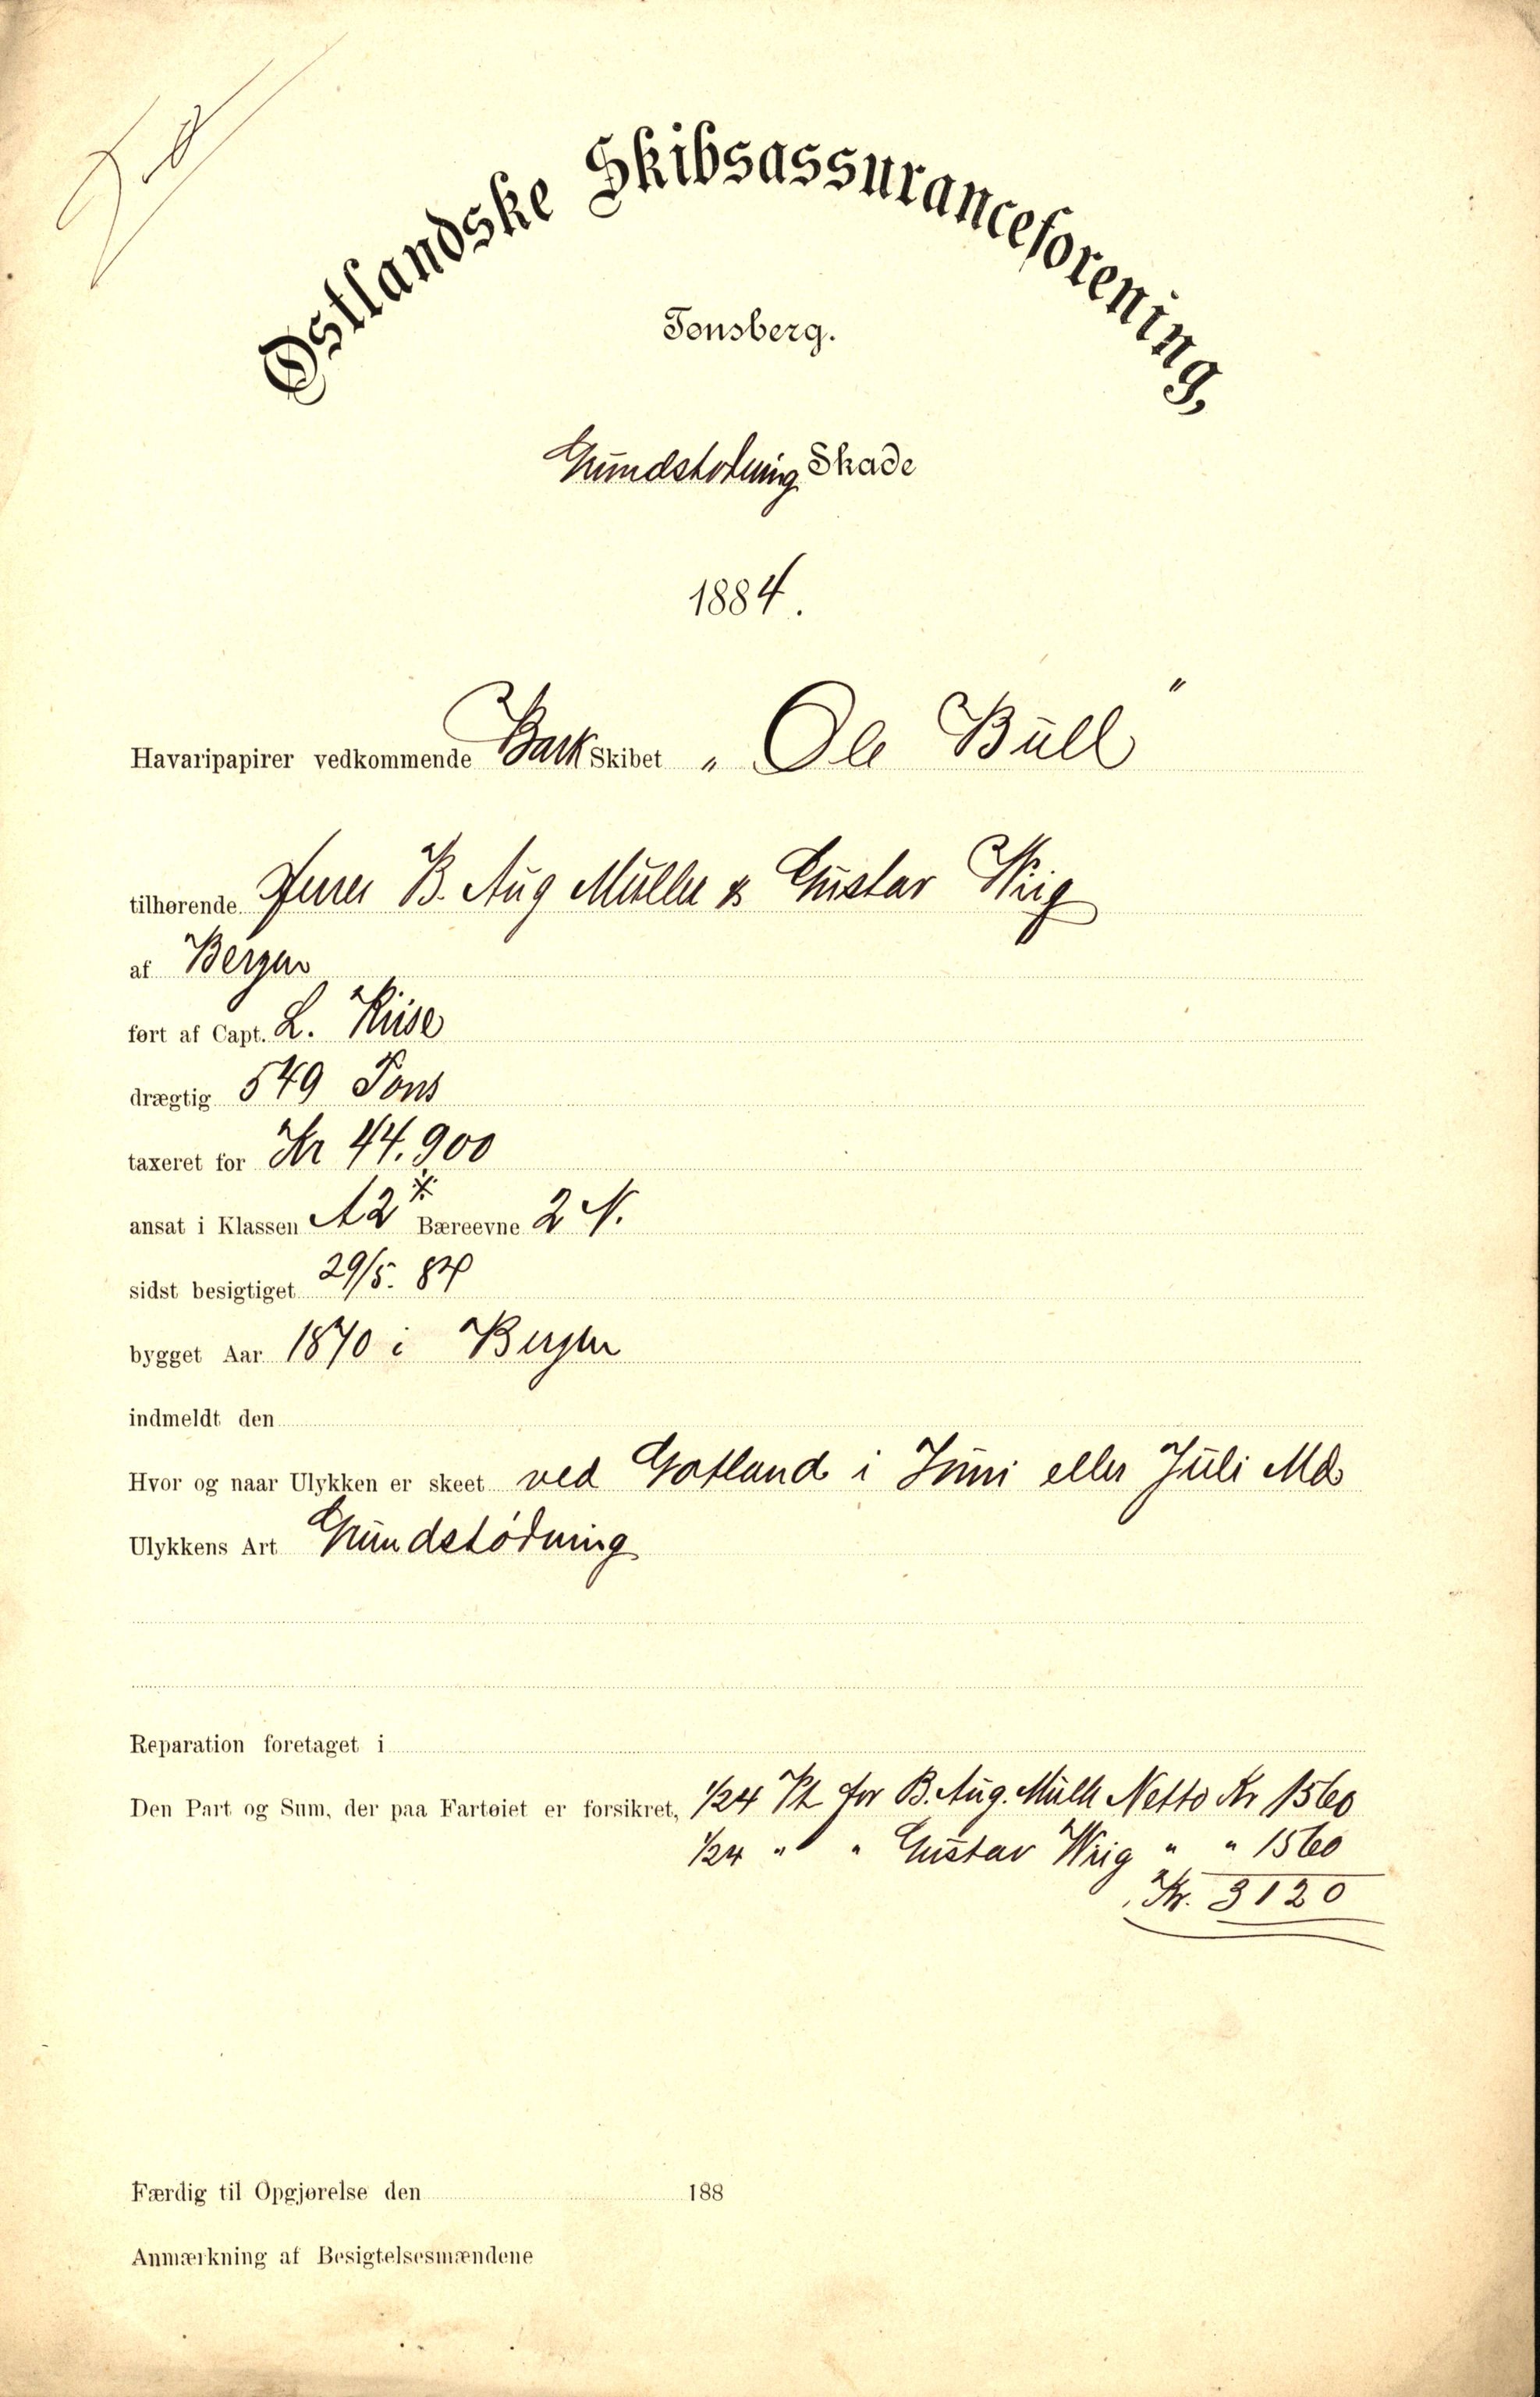 Østlandske Skibsassuranceforening,
Tønsberg.
Grundstødning Skade
1884.
Havaripapirer vedkommende Bark Skibet „Ole Bull"
tilhørende Herrer B. Aug Müller & Gustav Wiig
af Bergen
ført af Capt. L. Kiise
drægtig 549 Tons
taxeret for Kr 44.900
ansat i Klassen A2* Bæreevne 2 N.
sidst besigtiget 29/5. 84
bygget Aar 1870 i Bergen
indmeldt den
Hvor og naar Ulykken er skeet ved Gotland i Juni eller Juli Md
Ulykkens Art Grundstødning
Reparation foretaget i
Den Part og Sum, der paa Fartøiet er forsikret, 1/24 Pt for B. Aug. Müller Netto Kr 1560
1/24 " " Gustav Wiig " " 1560
Kr. 3120
Færdig til Opgjørelse den 188
Anmærkning af Besigtelsesmændene